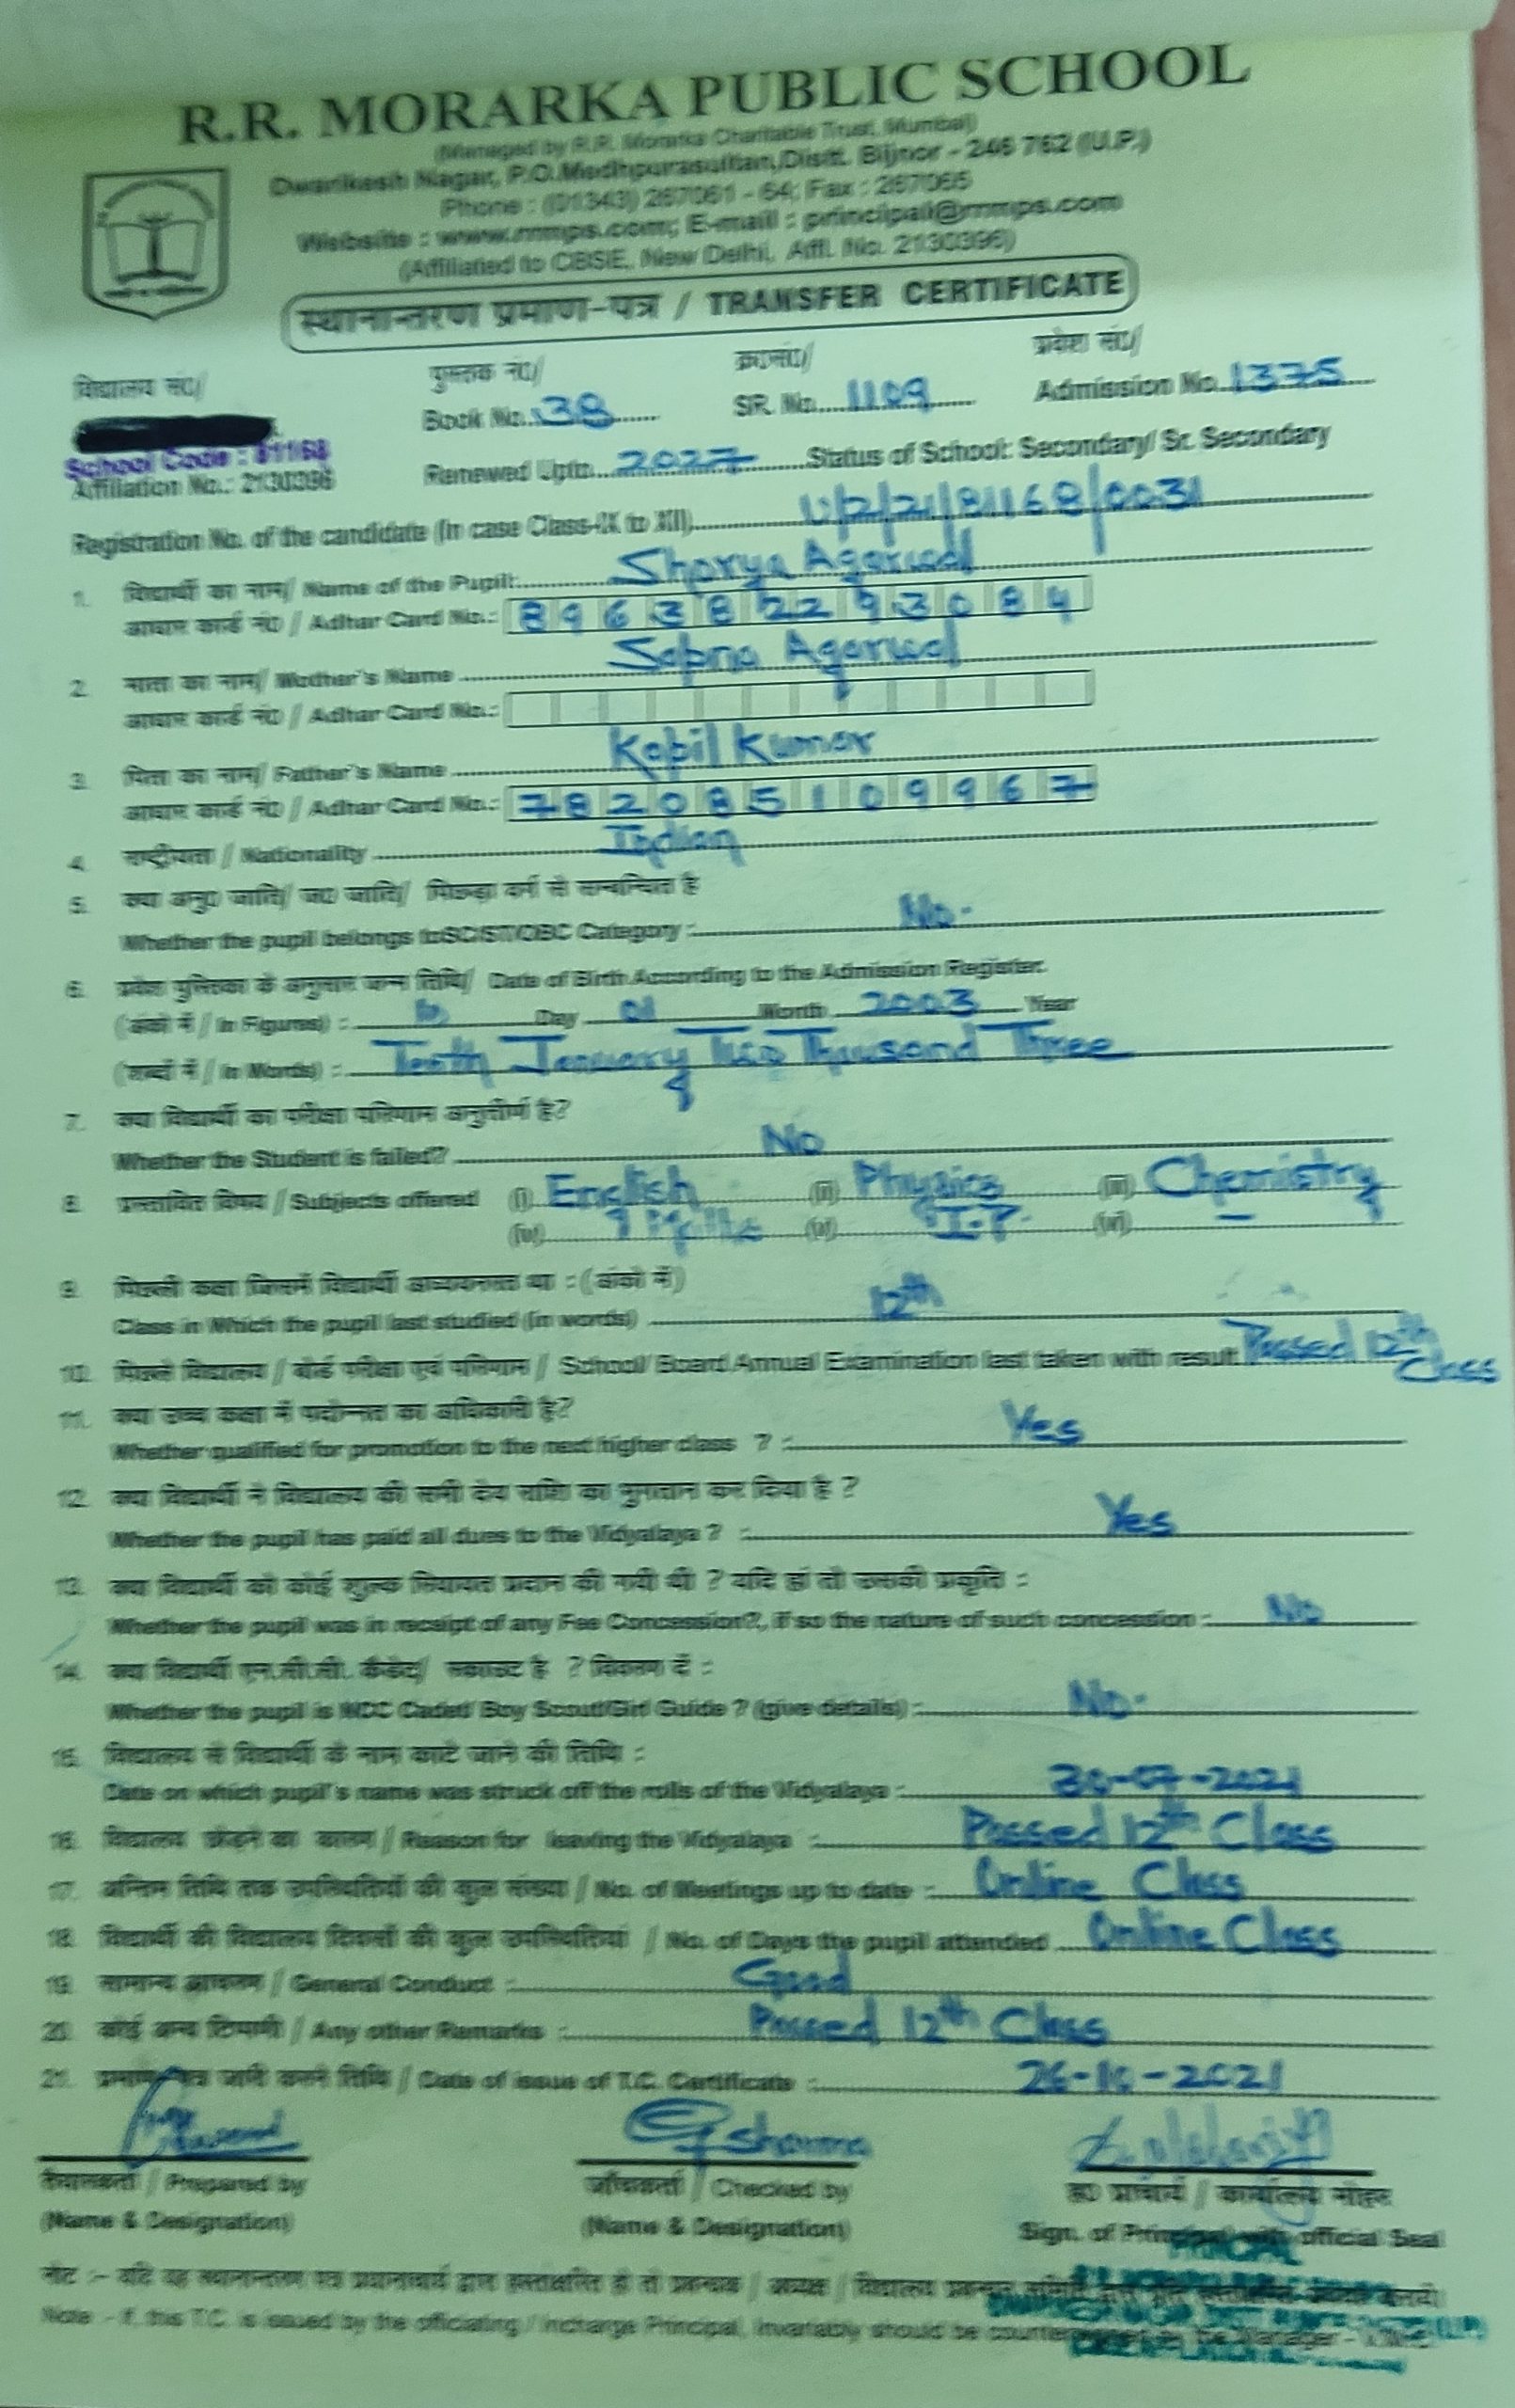 R.R. MORARKA PUBLIC SCHOOL
(Managed by R.R. Morarka Charitable Trust, Mumbai)
Dwarikesh Nagar, P.O. Medhpurasultan, Distt. Bijnor - 246 762 (U.P.)
Phone : (01343) 267061 - 64; Fax : 267065
Website : www.rrmps.com; E-mail : principal@rrmps.com
(Affiliated to CBSE, New Delhi, Affl. No. 2130396)
स्थानान्तरण प्रमाण-पत्र / TRANSFER CERTIFICATE
विद्यालय सं०/ पुस्तक नं०/ क्र०सं०/ प्रवेश सं०/
Book No. 38 SR. No. 1109 Admission No. 1375
School Code : 81168
Affiliation No.: 2130396 Renewed Upto 2027 Status of School: Secondary/ Sr. Secondary
Registration No. of the candidate (in case Class-IX to XII) 21/81168/0031
1. विद्यार्थी का नाम/ Name of the Pupil: Shorya Agarwal
आधार कार्ड नं० / Adhar Card No.: 896382293084
2. माता का नाम/ Mother's Name Sapna Agarwal
आधार कार्ड नं० / Adhar Card No.:
3. पिता का नाम/ Father's Name Kapil Kumar
आधार कार्ड नं० / Adhar Card No.: 782085109967
4. राष्ट्रीयता / Nationality Indian
5. क्या अनु० जाति/ ज० जाति/ पिछड़ा वर्ग से सम्बन्धित है
Whether the pupil belongs toSC/ST/OBC Category : No.
6. प्रवेश पुस्तिका के अनुसार जन्म तिथि/ Date of Birth According to the Admission Register.
(अंको में / In Figures) : 10 Day 01 Month 2003 Year
(शब्दों में / In Words) : Tenth January Two Thousand Three
7. क्या विद्यार्थी का परीक्षा परिणाम अनुत्तीर्ण है?
Whether the Student is failed? No
8. प्रस्तावित विषय / Subjects offered (i) English (ii) Physics (iii) Chemistry
(iv) Maths (v) I.P. (vi) –
9. पिछली कक्षा जिसमें विद्यार्थी अध्ययनरत था : (अंको में)
Class in Which the pupil last studied (in words) 12th
10. पिछले विद्यालय / बोर्ड परीक्षा एवं परिणाम / School/ Board Annual Examination last taken with result Passed 12th Class
11. क्या उच्च कक्षा में पदोन्नत का अधिकारी है?
Whether qualified for promotion to the next higher class ? : Yes
12. क्या विद्यार्थी ने विद्यालय की सभी देय राशि का भुगतान कर दिया है ?
Whether the pupil has paid all dues to the Vidyalaya ? : Yes
13. क्या विद्यार्थी को कोई शुल्क रियायत प्रदान की गयी थी ? यदि हां तो उसकी प्रकृति :
Whether the pupil was in receipt of any Fee Concession?, if so the nature of such concession : No
14. क्या विद्यार्थी एन.सी.सी. कैडेट/ स्काउट है ? विवरण दें :
Whether the pupil is NCC Cadet/ Boy Scout/Girl Guide ? (give details) : No.
15. विद्यालय से विद्यार्थी के नाम काटे जाने की तिथि :
Date on which pupil's name was struck off the rolls of the Vidyalaya : 30-07-2021
16. विद्यालय छोड़ने का कारण / Reason for leaving the Vidyalaya : Passed 12th Class
17. अन्तिम तिथि तक उपस्थितियों की कुल संख्या / No. of Meetings up to date : Online Class
18. विद्यार्थी की विद्यालय दिवसों की कुल उपस्थितियां / No. of Days the pupil attended Online Class
19. सामान्य आचरण / General Conduct : Good
20. कोई अन्य टिप्पणी / Any other Remarks : Passed 12th Class
21. प्रमाण पत्र जारी करने तिथि / Date of issue of T.C. Certificate : 26-10-2021
Sharma
तैयारकर्ता / Prepared by जाँचकर्ता / Checked by ह० प्राचार्य / कार्यालय मोहर
(Name & Designation) (Name & Designation) Sign. of Principal with official Seal
PRINCIPAL
नोट :- यदि यह स्थानान्तरण पत्र प्रधानाचार्य द्वारा हस्ताक्षरित हो तो प्रबन्धक / अध्यक्ष / विद्यालय प्रबन्धन समिति द्वारा
Note :- If, this T.C. is issued by the officiating / Incharge Principal, invariably should be countersigned by the Manager -